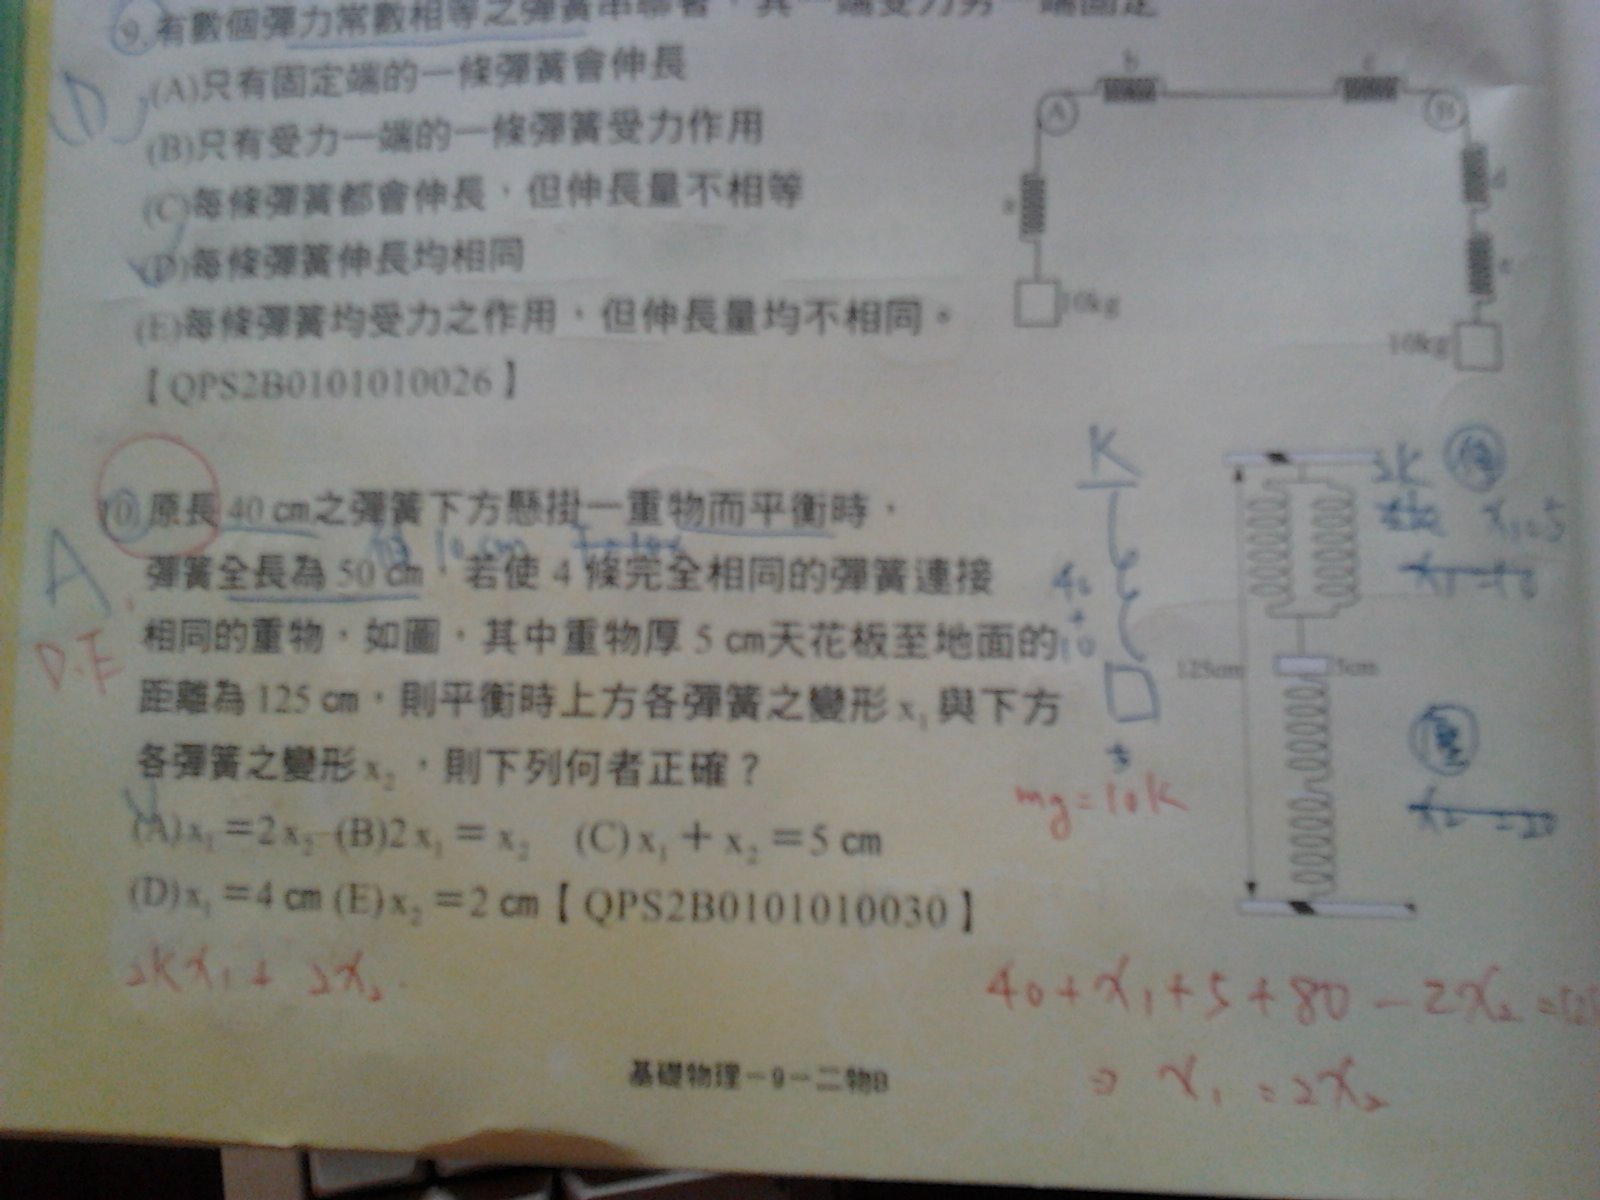 9.有數個彈力常數相等之彈簧串聯著，其一端受力另一端固定
(D)
(A)只有固定端的一條彈簧會伸長
(B)只有受力一端的一條彈簧受力作用
(C)每條彈簧都會伸長，但伸長量不相等
(D)每條彈簧伸長均相同
(E)每條彈簧均受力之作用，但伸長量均不相同。
【QPS2B0101010026】
b
c
A
B
a
d
e
10kg
10kg
10.原長40㎝之彈簧下方懸掛一重物而平衡時，
10 cm
彈簧全長為50㎝，若使4條完全相同的彈簧連接
A
相同的重物，如圖，其中重物厚5㎝天花板至地面的
D.E
距離為125㎝，則平衡時上方各彈簧之變形x₁與下方
各彈簧之變形x₂，則下列何者正確？
(A)x₁＝2x₂ (B)2x₁＝x₂ (C)x₁＋x₂＝5㎝
(D)x₁＝4㎝(E)x₂＝2㎝【QPS2B0101010030】
K
40
+
10
mg=10K
2K
125cm
5cm
2Kx₁+
40+x₁+5+80-2x₂=125
⇒ x₁=2x₂
基礎物理－9－二物B